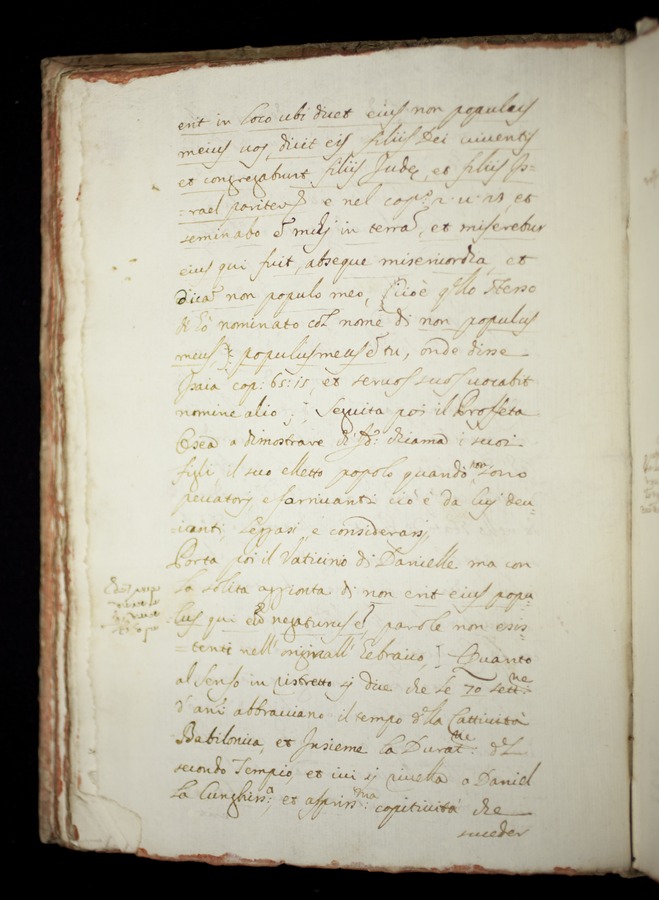 erit in loco ubi dicet eius non populus
meius vos, dicit eis filiis Dei viventis
et congregabunt filiis Judę, et filiis Is=
=rael pariter e nel cap:
seminabo in terra, et miserebur
eius qui fuit, absque misericordia, et
dica non populo meo, cioè Stesso
nominato nome di non populus
meus populus meus e tu, onde disse
Isaia cap: 65:15, et servos suos vocabit
nomine alio; Seguita poi il Proffeta
Osea a dimostrare chiama i suoi
figli il suo elletto popolo quando non sono
peccatori, e cioè da lui deu=
=ianti; Leggasi e considerasi,
Porta poi il Vaticinio di Danielle ma con
la solita aggionta di non erit eius popu=
lus qui negaturus e parole non esis=
=tenti nell' originall' Eebraico,] Quanto
al senso in ristretto si dice che le 70 sett:ne
d'ani abbracciano il tempo della Cattività
Babilonica, et Insieme la Durat:ne del
secondo Tempio, et ivi si rivella a Daniel
la Lunghis:a, et aspris:ma captività che
succeder